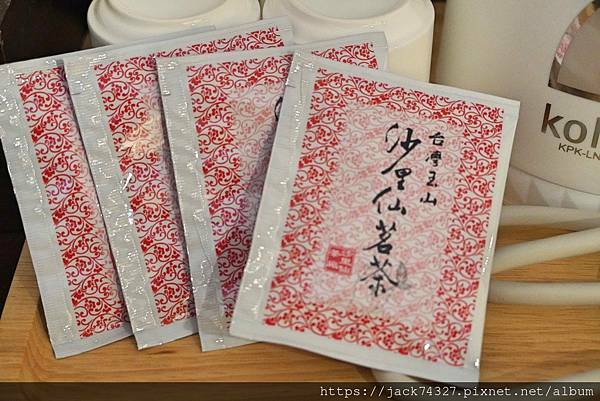 台灣玉山
沙里仙茗茶
kol
KPK-LN
https://jack74327.pixnet.net/album